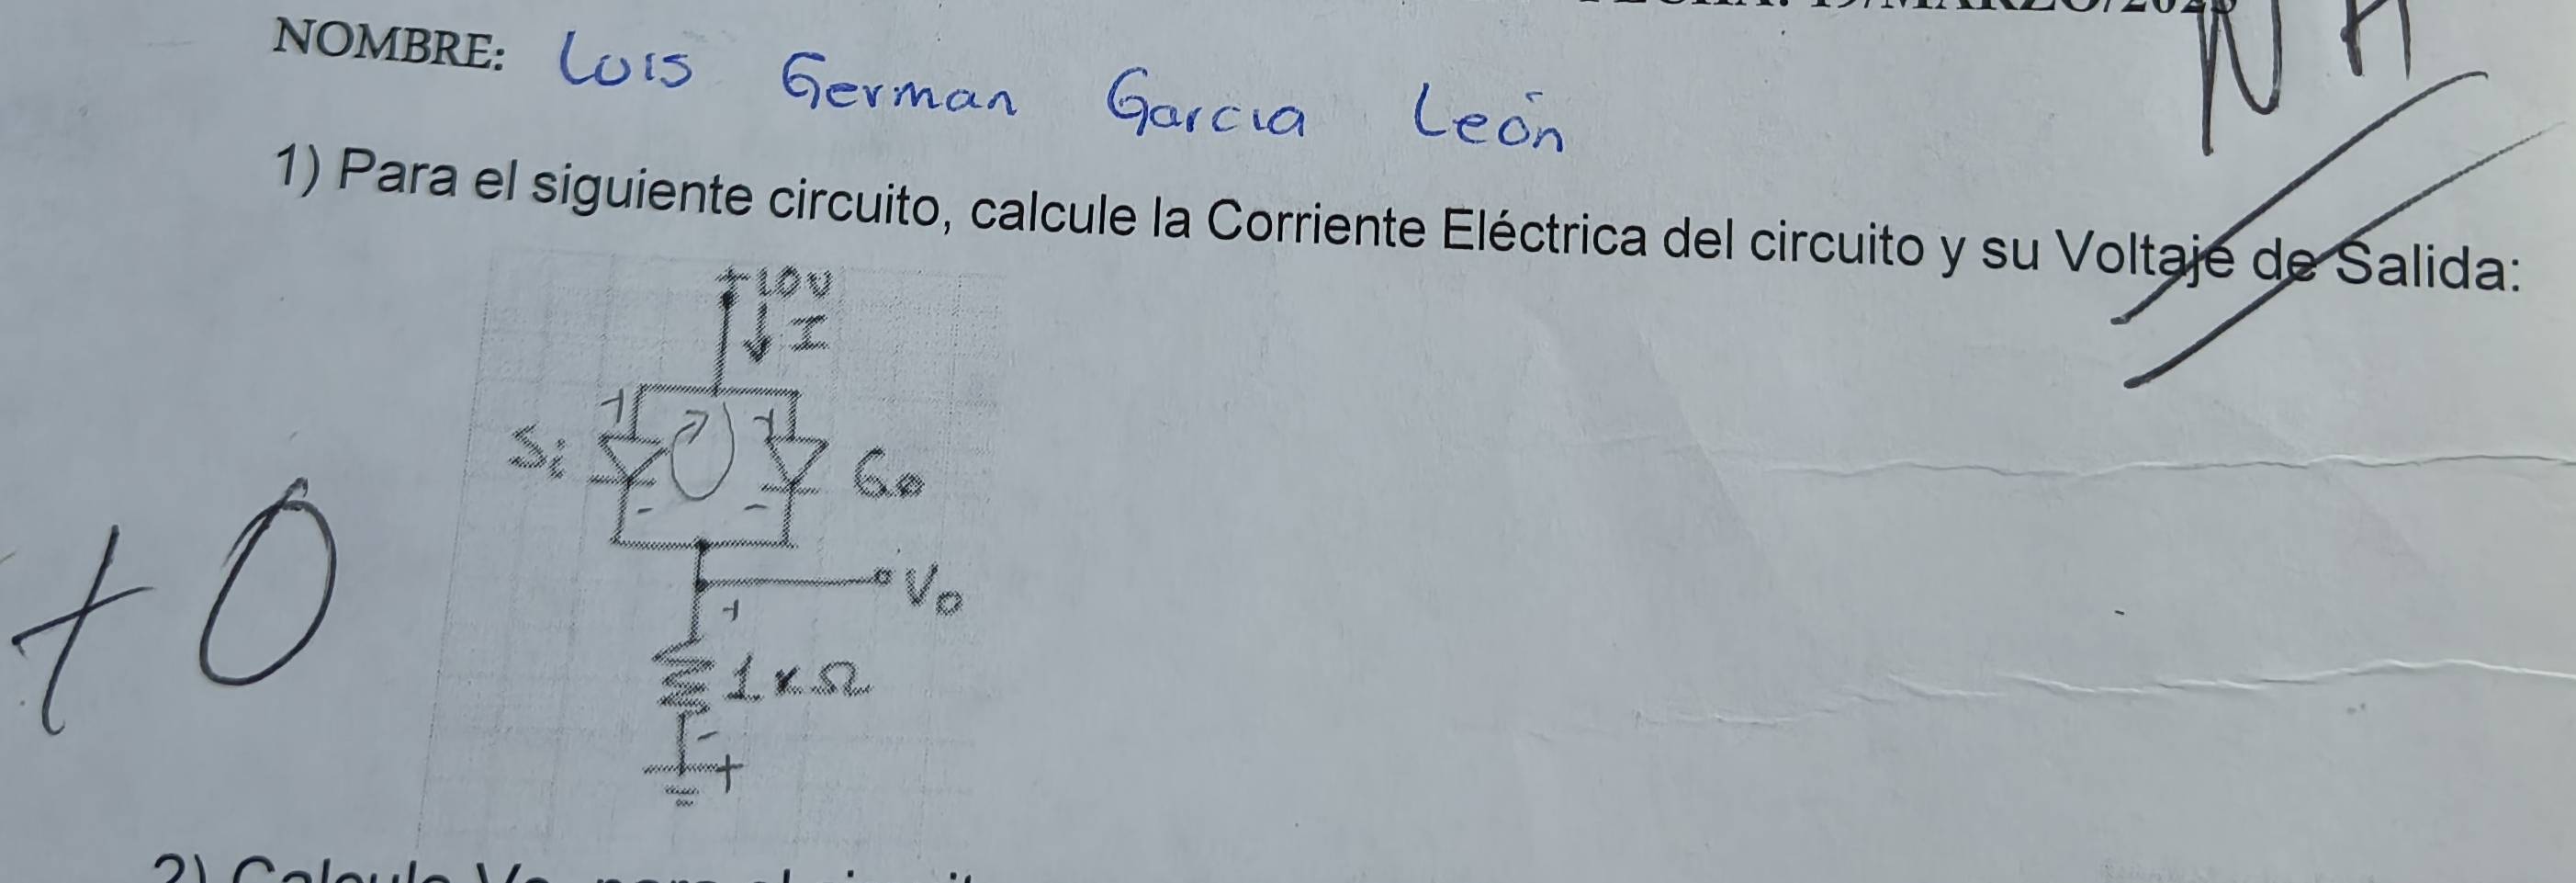 NOMBRE: Luis German Garcia León
NA
1) Para el siguiente circuito, calcule la Corriente Eléctrica del circuito y su Voltaje de Salida:
+10V
I
Si
Ge
+0
Vo
1KΩ